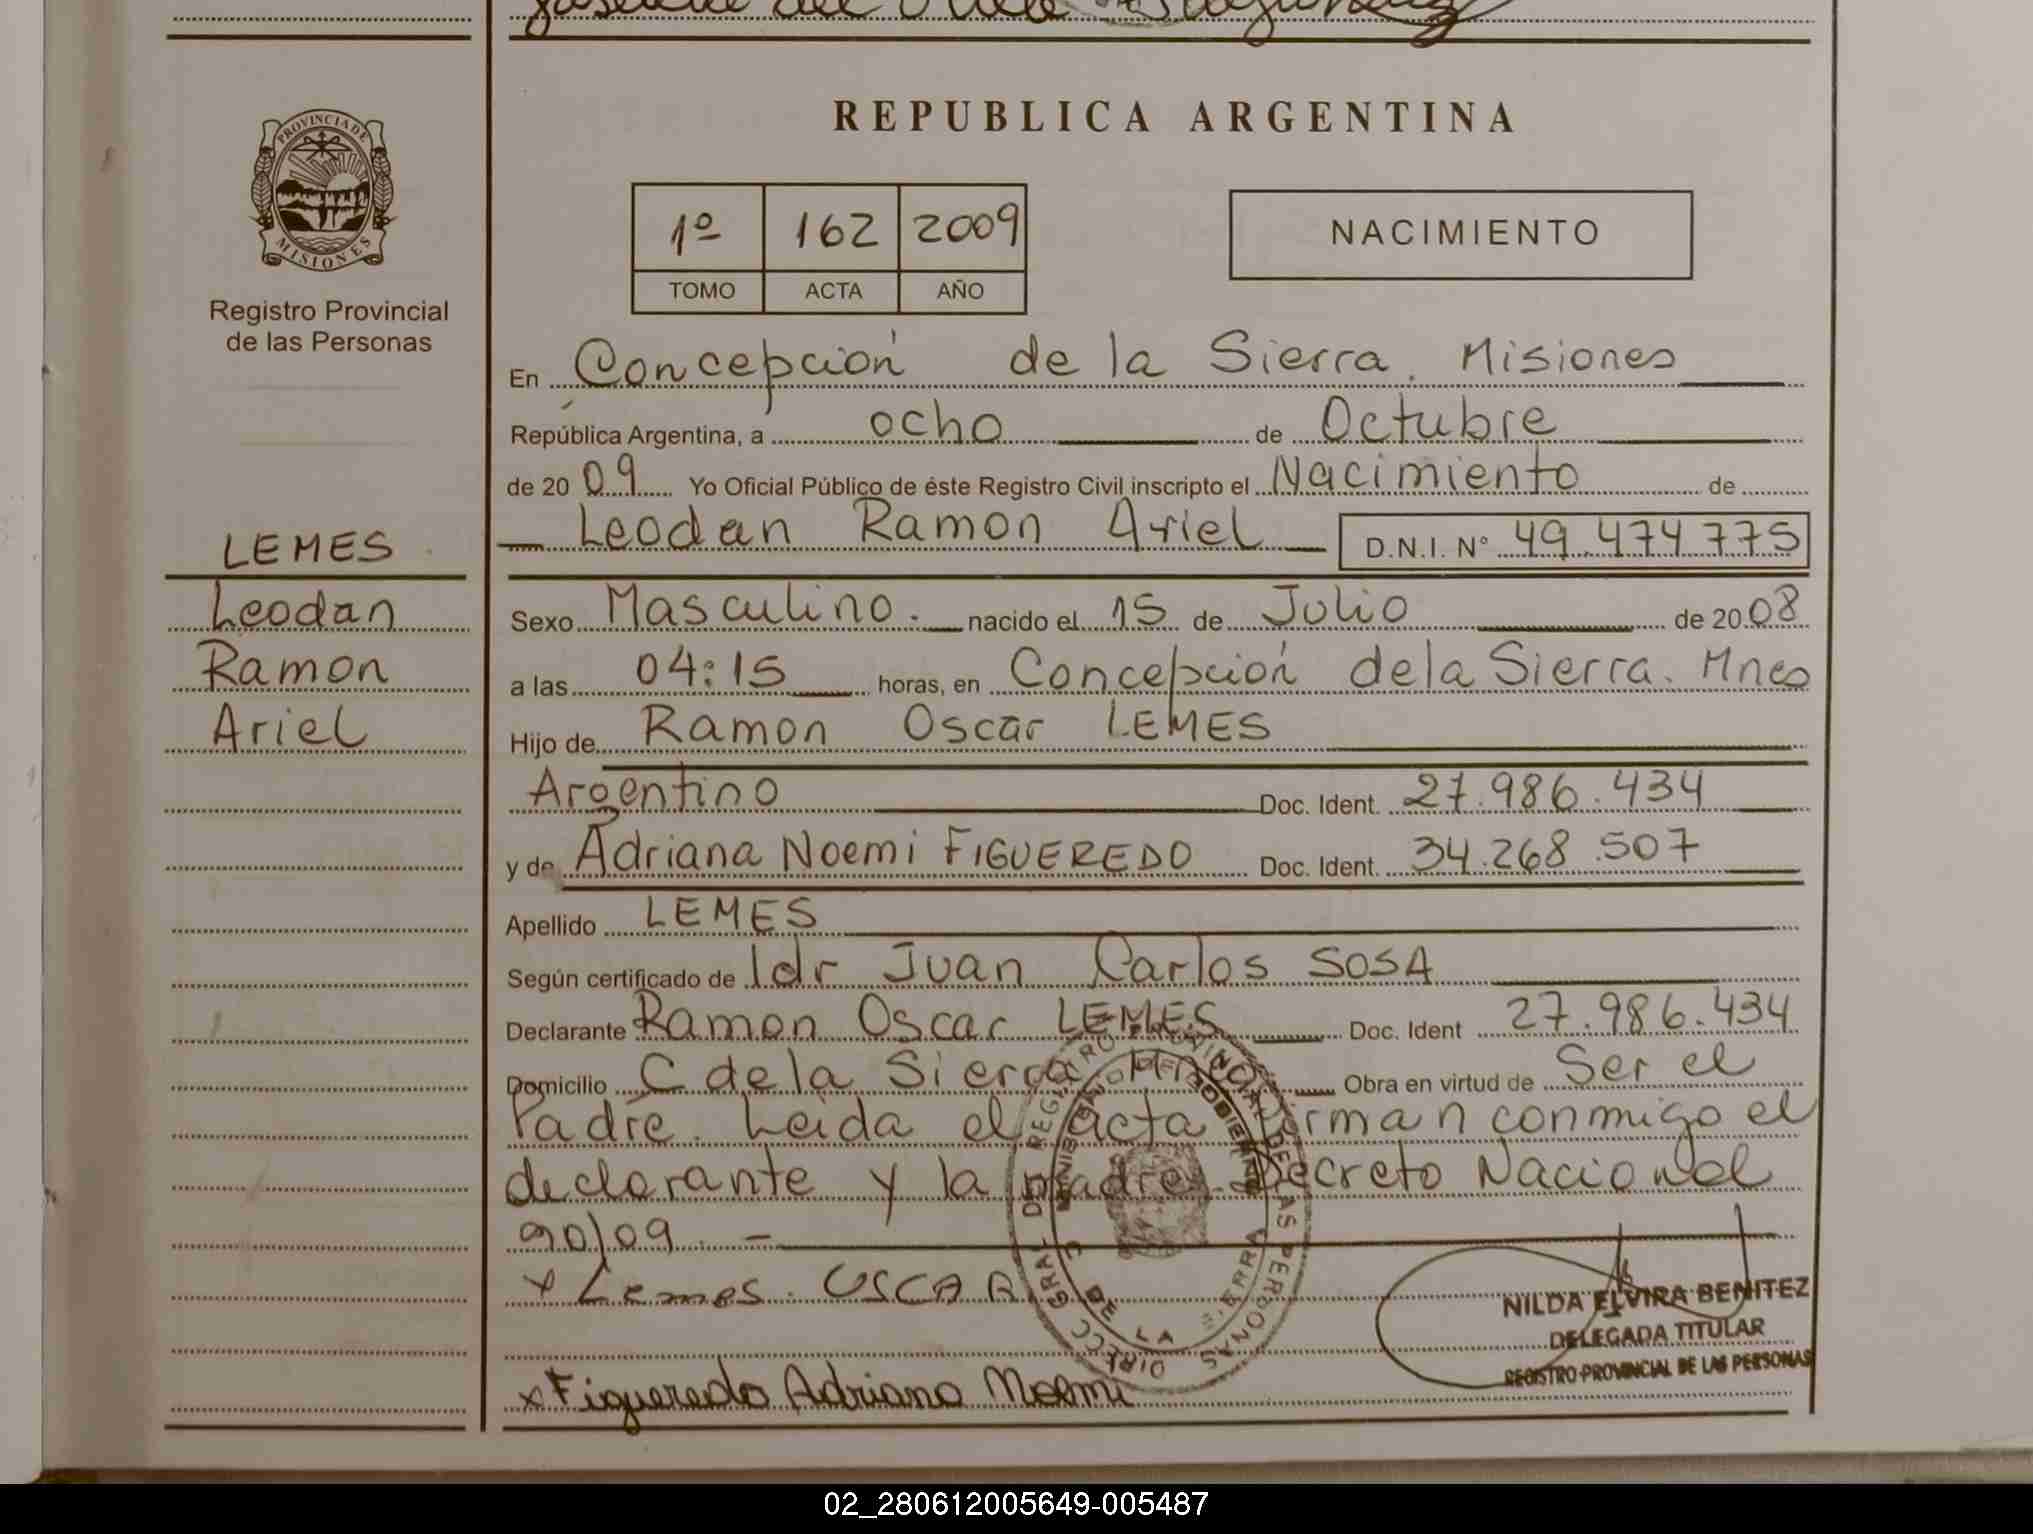 PROVINCIA DE
MISIONES
Registro Provincial
de las Personas
LEMES
Leodan
Ramon
Ariel
REPUBLICA ARGENTINA
1º 162 2009
TOMO ACTA AÑO
NACIMIENTO
En Concepción de la Sierra. Misiones
República Argentina, a ocho de Octubre
de 2009 Yo Oficial Público de éste Registro Civil inscripto el Nacimiento de
Leodan Ramon Ariel D.N.I. Nº 49.474.775
Sexo Masculino. nacido el 15 de Julio de 2008
a las 04:15 horas, en Concepción de la Sierra. Mnes
Hijo de Ramon Oscar LEMES
Argentino Doc. Ident. 27.986.434
y de Adriana Noemi FIGUEREDO Doc. Ident. 34.268.507
Apellido LEMES
Según certificado de Idr Juan Carlos SOSA
Declarante Ramon Oscar LEMES Doc. Ident 27.986.434
Domicilio C de la Sierra Mnes Obra en virtud de Ser el
Padre. Leida el acta firman conmigo el
declarante y la madre. Decreto Nacional
90/09. -
x Lemes. OSCAR
x Figueredo Adriana Noemi
DIRECC GRAL DE REGISTRO PROVINCIAL DE LAS PERSONAS
DE LA SIERRA
NILDA ELVIRA BENITEZ
DELEGADA TITULAR
REGISTRO PROVINCIAL DE LAS PERSONAS
02_280612005649-005487